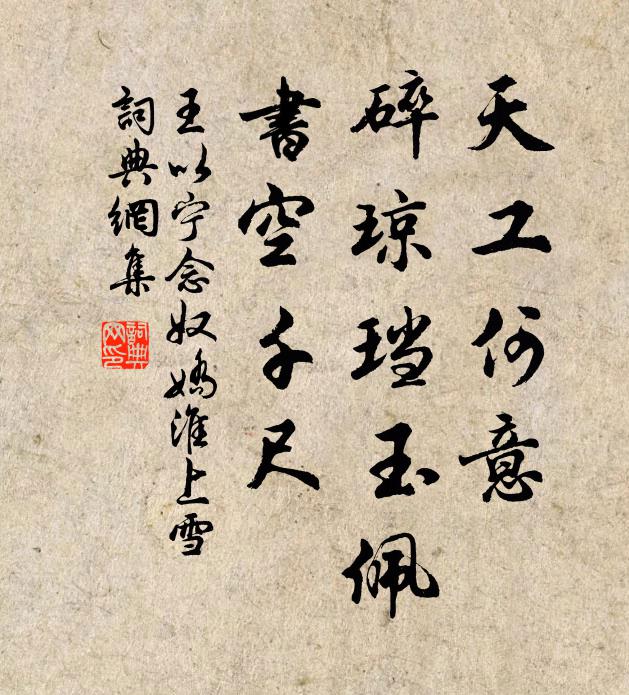 天工何意
碎琼珰玉佩
書空千尺
王以宁念奴嬌淮上雪
詞典網集
詞典网印